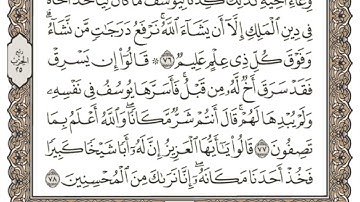 وِعَآءِ أَخِيهِ كَذَٰلِكَ كِدْنَا لِيُوسُفَ مَا كَانَ لِيَأْخُذَ أَخَاهُ
فِي دِينِ ٱلْمَلِكِ إِلَّآ أَن يَشَآءَ ٱللَّهُ نَرْفَعُ دَرَجَٰتٍ مَّن نَّشَآءُ
وَفَوْقَ كُلِّ ذِي عِلْمٍ عَلِيمٌ ٧٦ ۞ قَالُوٓا۟ إِن يَسْرِقْ
فَقَدْ سَرَقَ أَخٌ لَّهُۥ مِن قَبْلُ فَأَسَرَّهَا يُوسُفُ فِي نَفْسِهِۦ
وَلَمْ يُبْدِهَا لَهُمْ قَالَ أَنتُمْ شَرٌّ مَّكَانًا وَٱللَّهُ أَعْلَمُ بِمَا
تَصِفُونَ ٧٧ قَالُوا۟ يَٰٓأَيُّهَا ٱلْعَزِيزُ إِنَّ لَهُۥٓ أَبًا شَيْخًا كَبِيرًا
فَخُذْ أَحَدَنَا مَكَانَهُۥٓ إِنَّا نَرَىٰكَ مِنَ ٱلْمُحْسِنِينَ ٧٨
ربع
الحزب
٢٥